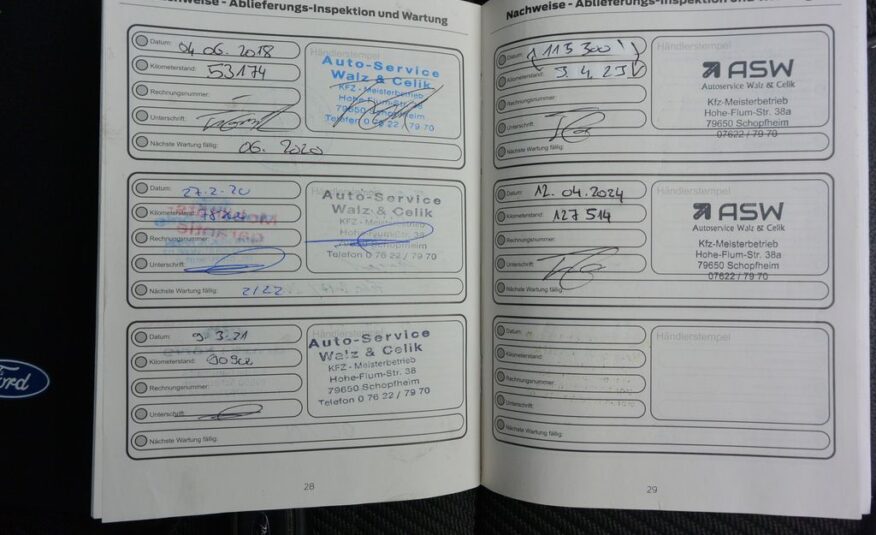 Nachweise - Ablieferungs-Inspektion und Wartung
Datum: 04.06.2018
Kilometerstand: 53174
Rechnungsnummer:
Unterschrift:
Nächste Wartung fällig: 06. 2020
Händlerstempel
Auto-Service
Walz & Celik
KFZ - Meisterbetrieb
Hohe-Flum-Str. 38
79650 Schopfheim
Telefon 0 76 22 / 79 70
Datum: 27.2.20
Kilometerstand:
Rechnungsnummer:
Unterschrift:
Nächste Wartung fällig: 2/22
Händlerstempel
Auto-Service
Walz & Celik
KFZ - Meisterbetrieb
Hohe-Flum-Str. 38
79650 Schopfheim
Telefon 0 76 22 / 79 70
Datum: 9.3.21
Kilometerstand:
Rechnungsnummer:
Unterschrift:
Nächste Wartung fällig:
Händlerstempel
Auto-Service
Walz & Celik
KFZ - Meisterbetrieb
Hohe-Flum-Str. 38
79650 Schopfheim
Telefon 0 76 22 / 79 70
28
Nachweise - Ablieferungs-Inspektion und Wartung
Datum: 113 300
Kilometerstand: 3.4.23
Rechnungsnummer:
Unterschrift:
Nächste Wartung fällig:
Händlerstempel
ASW
Autoservice Walz & Celik
Kfz-Meisterbetrieb
Hohe-Flum-Str. 38a
79650 Schopfheim
07622 / 79 70
Datum: 12.04.2024
Kilometerstand: 127 514
Rechnungsnummer:
Unterschrift:
Nächste Wartung fällig:
Händlerstempel
ASW
Autoservice Walz & Celik
Kfz-Meisterbetrieb
Hohe-Flum-Str. 38a
79650 Schopfheim
07622 / 79 70
Datum:
Kilometerstand:
Rechnungsnummer:
Unterschrift:
Nächste Wartung fällig:
Händlerstempel
29
Ford